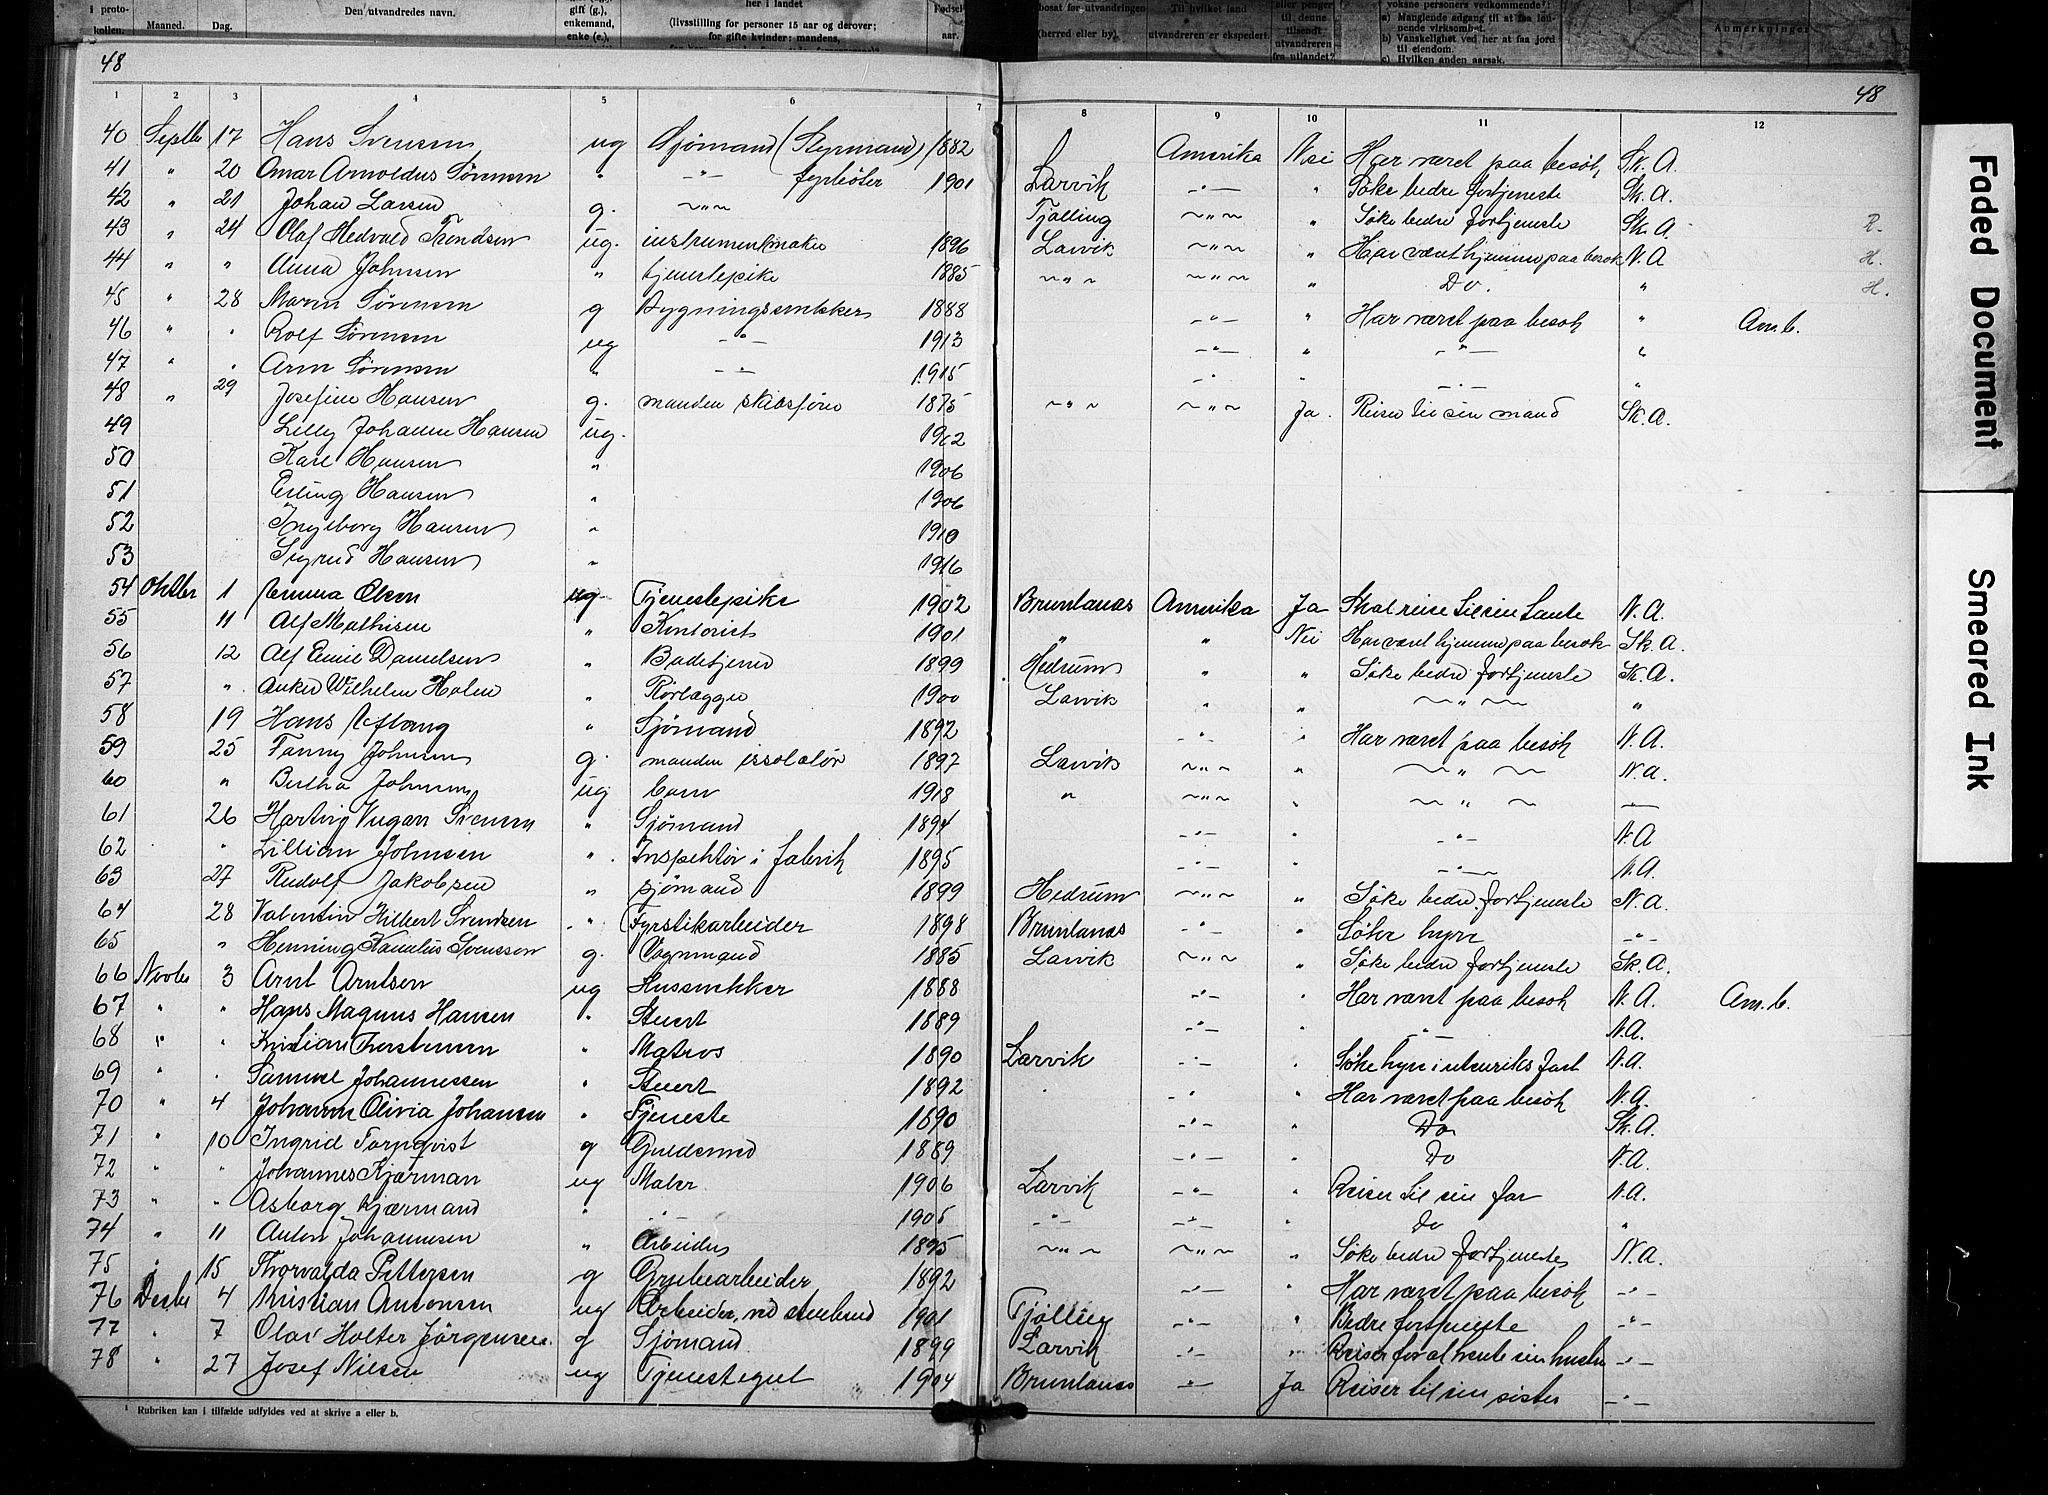 i proto-
kollen.
Maaned.
Dag.
Den utvandredes navn.
gift (g.),
enkemand,
enke (e.),
her i landet
(livsstilling for personer 15 aar og derover;
for gifte kvinder: mandens,
Fødsel
aar.
bosat før utvandringen
(herred eller by).
Til hvilket land
utvandreren er ekspedert.
eller penger
til denne
tilsendt
utvandreren
fra utlandet?
voksne personers vedkommende¹:
a) Manglende adgang til at faa løn-
nende virksomhet.
b) Vanskelighet ved her at faa jord
til eiendom.
c) Hvilken anden aarsak.
Anmerkninger
48
48
1 2 3 4 5 6 7 8 9 10 11 12
40 Septbr 17 Hans Svensen ug Sjømand (Styrmand) 1882 Amerika Nei Har været paa besøk Sk. A.
41 " 20 Omar Arnoldus Sørensen " -"- fyrbøter 1901 Larvik -"- " Søke bedre fortjeneste Sk. A.
42 " 21 Johan Larsen g. ~"~ Tjølling ~"~ " Søke bedre fortjeneste Sk. A.
43 " 24 Olaf Hedvald Trondsen ug. instrumentmaker 1896 Larvik ~"~ " Har været hjemme paa besøk N. A R.
44 " " Anna Johnsen " tjenestepike 1885 ~"~ ~"~ " Do. " H.
45 " 28 Maren Sørensen g Bygningssnekker 1888 -"- " Har været paa besøk " Am. b. H.
46 " " Rolf Sørensen ug -"- 1913 -"- " -"- "
47 " " Arne Sørensen " -"- 1915 -"- " -"- "
48 " 29 Josefine Hansen g. manden skibsfører 1875 ~"~ ~"~ Ja. Reiser til sin mand Sk. A.
49 Lilly Johanne Hansen ug. 1902
50 Kare Hansen " 1906
51 Erling Hansen " 1906
52 Ingeborg Hansen " 1910
53 Sigrud Hansen " 1916
54 Oktbr 1 Emma Olsen ug Tjenestepike 1902 Brunlanæs Amerika Ja Skal reise til sin tante N. A.
55 11 Alf Mathisen " Kontorist 1901 " " Nei Har været hjemme paa besøk Sk. A.
56 12 Alf Emil Danielsen " Badetjener 1899 Hedrum " " Søke bedre fortjeneste Sk. A.
57 " Anker Wilhelm Holm " Rørlægger 1900 Larvik " " ~"~ "
58 19 Hans Aflang " Sjømand 1892 -"- " Har været paa besøk N. A.
59 25 Fanny Johnsen g. manden issolatør 1897 Larvik ~"~ " ~"~ N. A.
60 " Birtha Johnsen ug barn 1918 " ~"~ " ~"~
61 26 Hartvig Svensen " Sjømand 1894 -"- " -"- N. A
62 " Lillian Johnsen " Inspektør i fabrik 1895 -"- " -"- N. A.
63 27 Rudolf Jakobsen " sjømand 1899 Hedrum ~"~ " Søke bedre fortjeneste N. A.
64 28 Valentin Hilbert Svendsen " Fyrstikarbeider 1898 Brunlanæs -"- " Søke hyre -"-
65 " Henning Kamilius Svensson g. Vognmand 1885 Larvik ~"~ " Søke bedre fortjeneste Sk. A.
66 Novbr 3 Arnt Arntsen ug Hussnekker 1888 -"- " Har været paa besøk N. A. Am. b.
67 " " Hans Magnus Hansen " Stuert 1889 -"- " " N. A.
68 " " Kristian Torstensen " Matros 1890 Larvik -"- " Søke hyre i utenriks fart N. A.
69 " " Samuel Johannessen " Stuert 1892 " -"- " Har været paa besøk N. A.
70 " 4 Johanne Olivia Johansen " Tjeneste 1890 -"- " Do Sk. A.
71 " 10 Ingrid Tornqvist g Guldsmed 1889 -"- " Do N. A.
72 " " Johannes Kjærman ug Maler 1906 Larvik -"- " Reiser til sin far N. A.
73 " " Asborg Kjærmand " 1905 -"- -"- " Do "
74 " 11 Anton Johannesen " Arbeider 1895 ~"~ ~"~ " Søke bedre fortjeneste N. A.
75 " 15 Thorvalda Pettersen g Grubearbeider 1892 -"- " Har været paa besøk -"-
76 Desbr 4 Kristian Antonsen ug Arbeider, ved stenbrud 1901 Tjølling -"- " Bedre fortjeneste -"-
77 " 7 Olav Holter Jørgensen g Sjømand 1899 Larvik -"- " Reiser for at hente sin hustru -"-
78 " 27 Josef Nilsen ug Tjenestegut 1904 Brunlanæs -"- Ja Reiser til sin søster -"-
¹ Rubriken kan i tilfælde utfyldes ved at skrive a eller b.
Faded Document
Smeared Ink